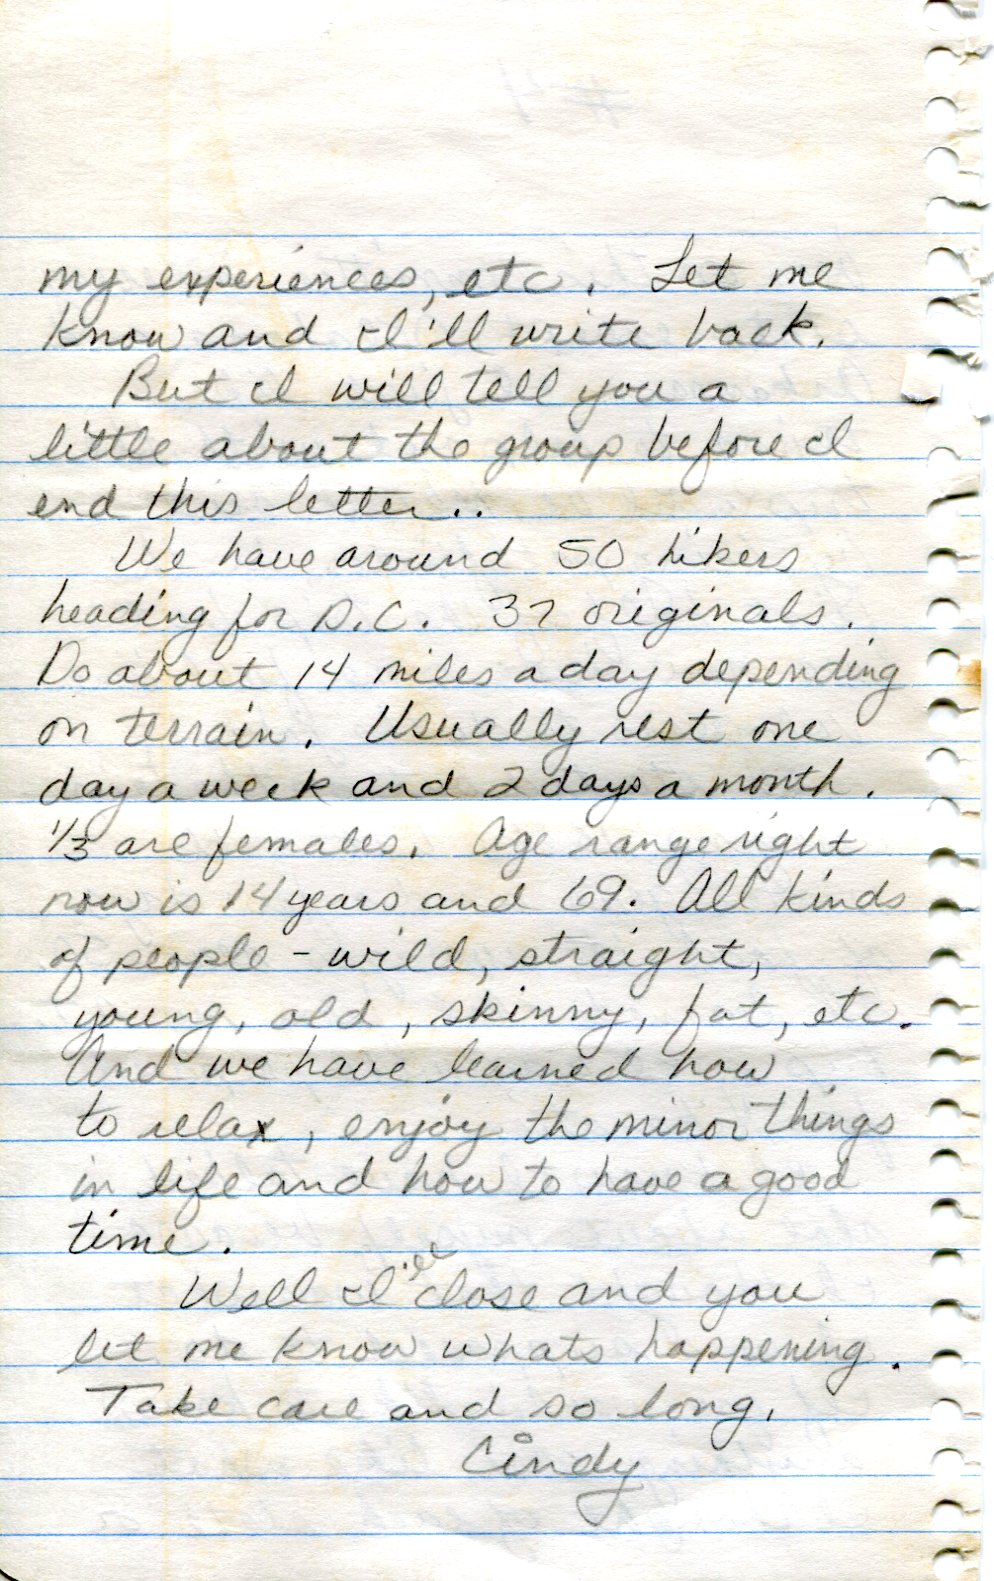 my experiences, etc. Let me
know and I'll write back.
But I will tell you a
little about the group before I
end this letter..
We have around 50 hikers
heading for D.C. 37 originals.
Do about 14 miles a day depending
on terrain. Usually rest one
day a week and 2 days a month.
1/3 are females. Age range right
now is 14 years and 69. All kinds
of people - wild, straight,
young, old, skinny, fat, etc.
And we have learned how
to relax, enjoy the minor things
in life and how to have a good
time.
Well I'll close and you
let me know whats happening.
Take care and so long,
Cindy